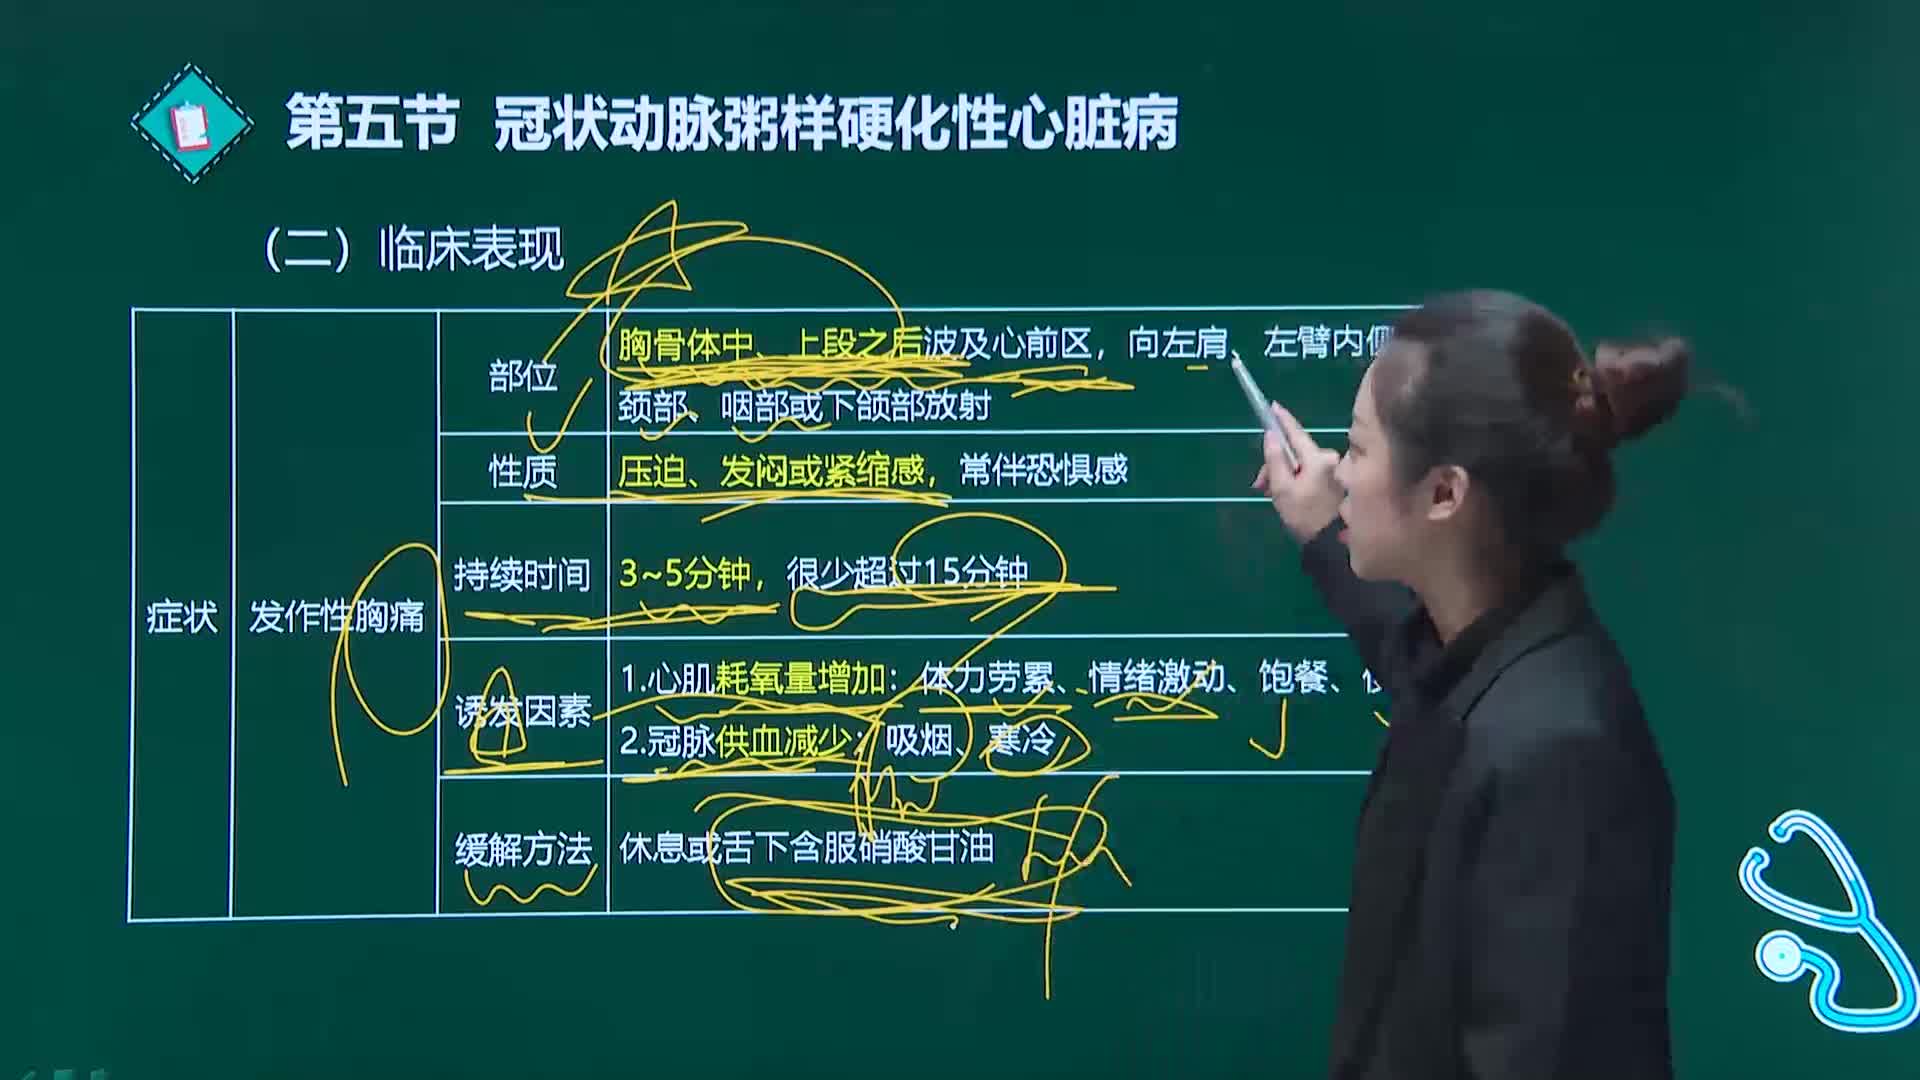 第五节 冠状动脉粥样硬化性心脏病
（二）临床表现
症状
发作性胸痛
部位
胸骨体中、上段之后波及心前区，向左肩、左臂内侧
颈部、咽部或下颌部放射
性质
压迫、发闷或紧缩感，常伴恐惧感
持续时间
3~5分钟，很少超过15分钟
诱发因素
1.心肌耗氧量增加：体力劳累、情绪激动、饱餐、
2.冠脉供血减少：吸烟、寒冷
缓解方法
休息或舌下含服硝酸甘油